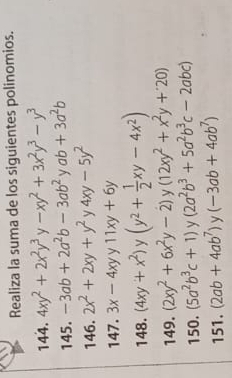 Realiza la suma de los siguientes polinomios.
144. 4xy² + 2x²y³ y −xy² + 3x²y³ − y³
145. −3ab + 2a²b − 3ab² y ab + 3a²b
146. 2x² + 2xy + y² y 4xy − 5y²
147. 3x − 4xy y 11xy + 6y
148. (4xy + x²) y (y² + ½xy − 4x²)
149. (2xy² + 6x²y − 2) y (12xy² + x²y + 20)
150. (5a²b³c + 1) y (2a²b³ + 5a²b³c − 2abc)
151. (2ab + 4ab⁷) y (−3ab + 4ab⁷)